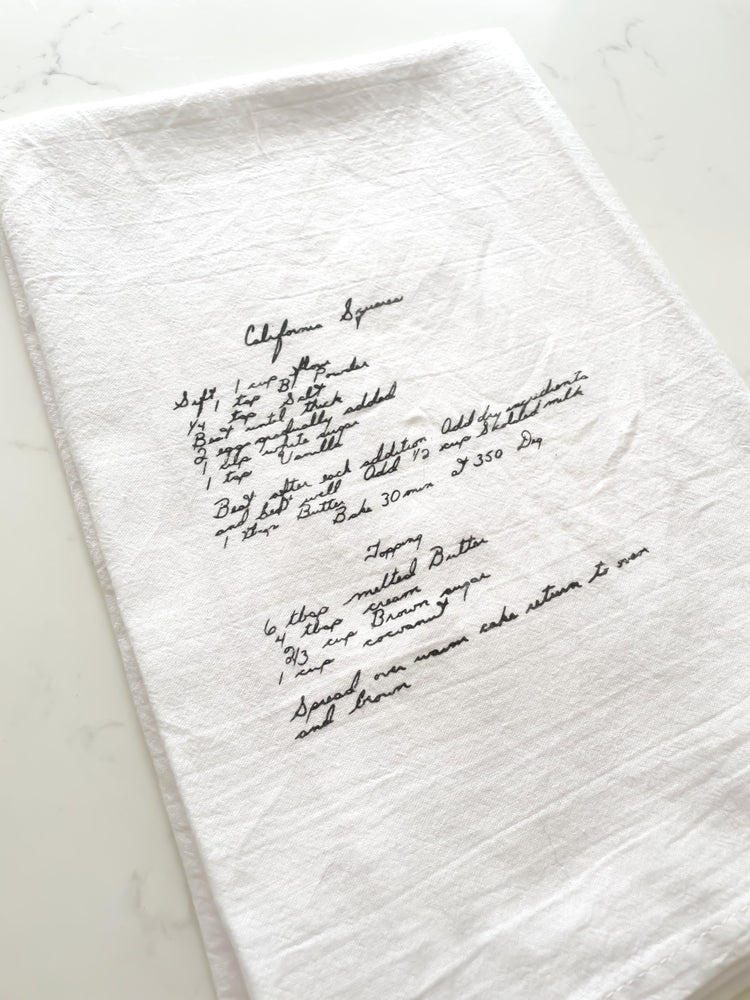 California Squares
Sift 1 cup flour
1 tsp B Powder
1/4 tsp Salt
Beat until thick
2 eggs gradually added
1 cup white sugar
1 tsp Vanilla
Beat after each addition Add dry ingredients
and beat well Add 1/2 cup Skalded milk
1 tbsp Butter
Bake 30 min at 350 Deg
Topping
6 tbsp melted Butter
4 tbsp cream
2/3 cup Brown sugar
1 cup cocoanut
Spread over warm cake return to oven
and brown